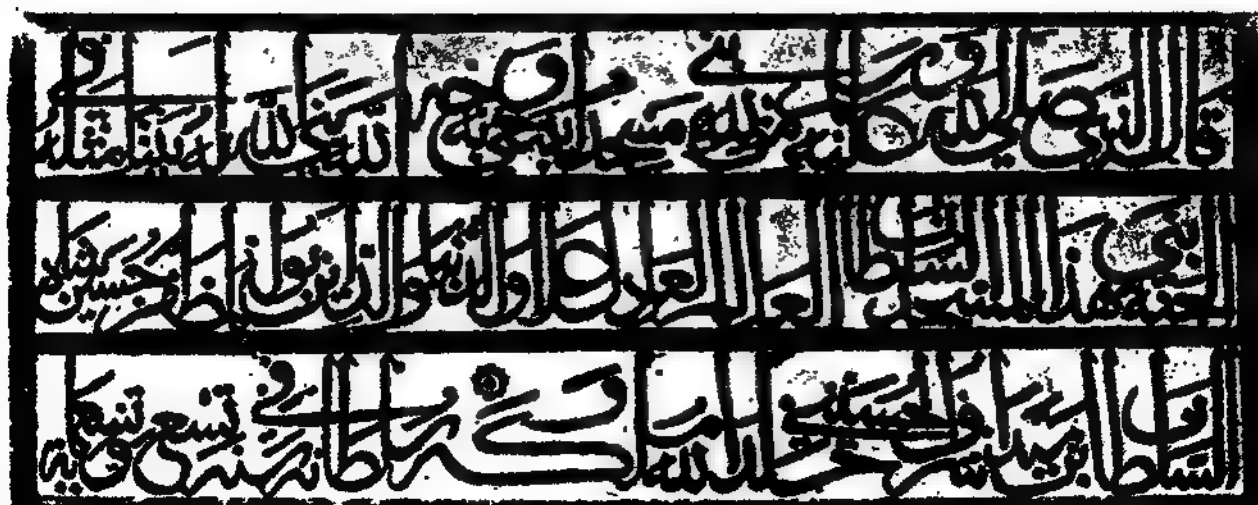 قال النبي صلى الله عليه وسلم من بنى لله مسجدا يبتغي به وجه الله بنى الله له بيتا مثله في
الجنة بنى هذا المسجد السلطان العادل علاء الدنيا والدين ابو المظفر حسين شاه
السلطان بن سيد اشرف الحسيني خلد الله ملكه وسلطانه في سنة تسع وتسعمايه